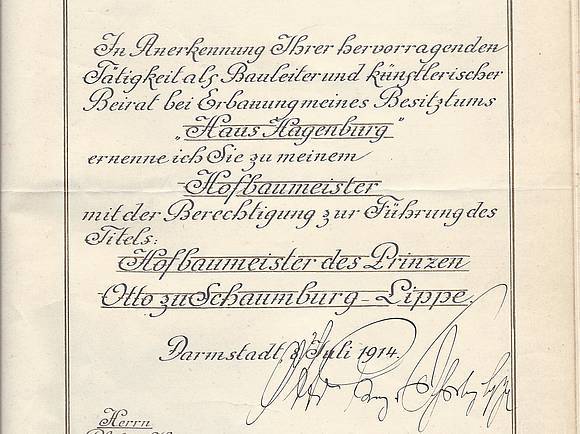 In Anerkennung Ihrer hervorragenden
Tätigkeit als Bauleiter und künstlerischer
Beirat bei Erbauung meines Besitztums
„Haus Hagenburg"
ernenne ich Sie zu meinem
Hofbaumeister
mit der Berechtigung zur Führung des
Titels:
Hofbaumeister des Prinzen
Otto zu Schaumburg-Lippe.
Darmstadt, 8. Juli 1914.
Herrn